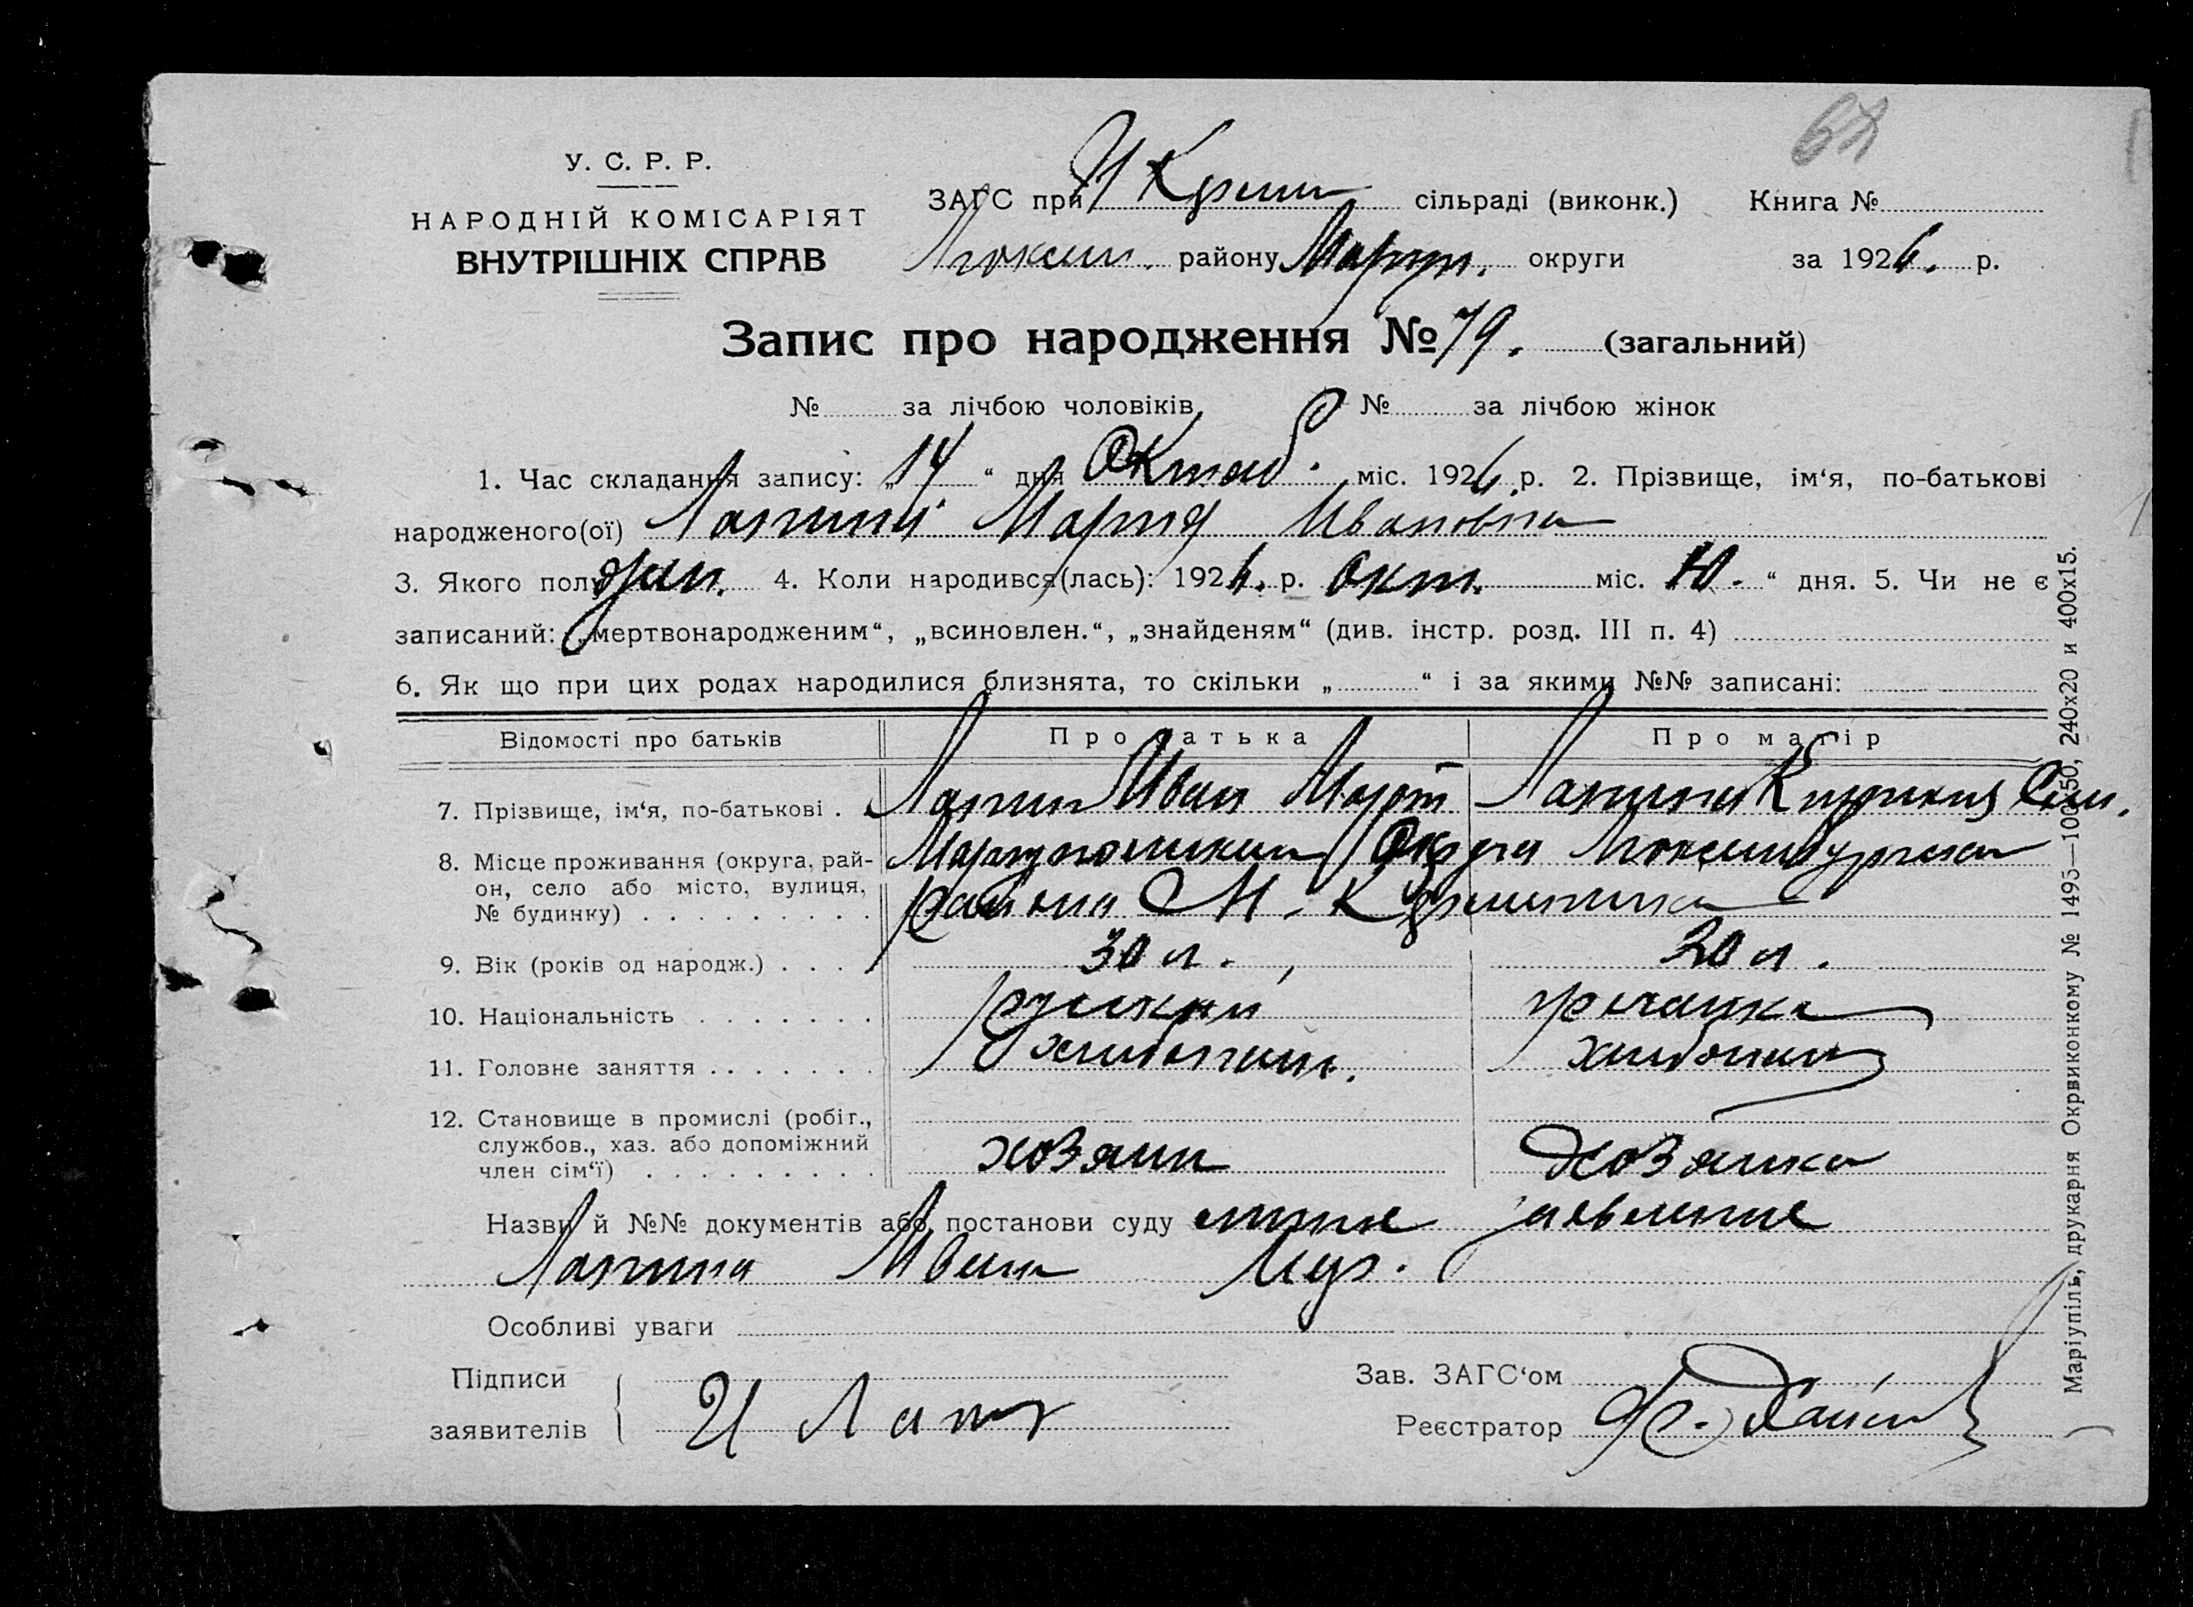 У. С. Р. Р.
НАРОДНІЙ КОМІСАРІЯТ
ВНУТРІШНІХ СПРАВ
ЗАГС при сільраді (виконк.) Книга №
району Мариуп. округи за 1926. р.
Запис про народження № 79. (загальний)
№ за лічбою чоловіків № за лічбою жінок
1. Час складання запису: „14“ дня Октяб. міс. 1926 р. 2. Прізвище, ім‘я, по-батькові
народженого(ої) Мария Ивановна
3. Якого полу жен. 4. Коли народився(лась): 1926. р. Окт. міс. 10. “ дня. 5. Чи не є
записаний: „мертвонародженим“, „всиновлен.“, „знайденям“ (див. інстр. розд. III п. 4)
6. Як що при цих родах народилися близнята, то скільки „ “ і за якими №№ записані:
Відомості про батьків Про батька Про матір
7. Прізвище, ім‘я, по-батькові . Лапин Иван Лапина
8. Місце проживання (округа, рай-
он, село або місто, вулиця,
№ будинку) Мариупольский Округа
района
9. Вік (років од народж.) 30 л. 30 л.
10. Національність русский гречанка
11. Головне заняття хлебопаш.
12. Становище в промислі (робіт.,
службов., хаз. або допоміжний
член сім‘ї) хозяин хозяйка
Назви й №№ документів або постанови суду заявление
Лапина Ивана
Особливі уваги
Підписи
заявителів И Лапин
Зав. ЗАГС‘ом
Реєстратор
Маріупіль, друкарня Окрвиконкому № 1495—100х50, 240х20 и 400х15.